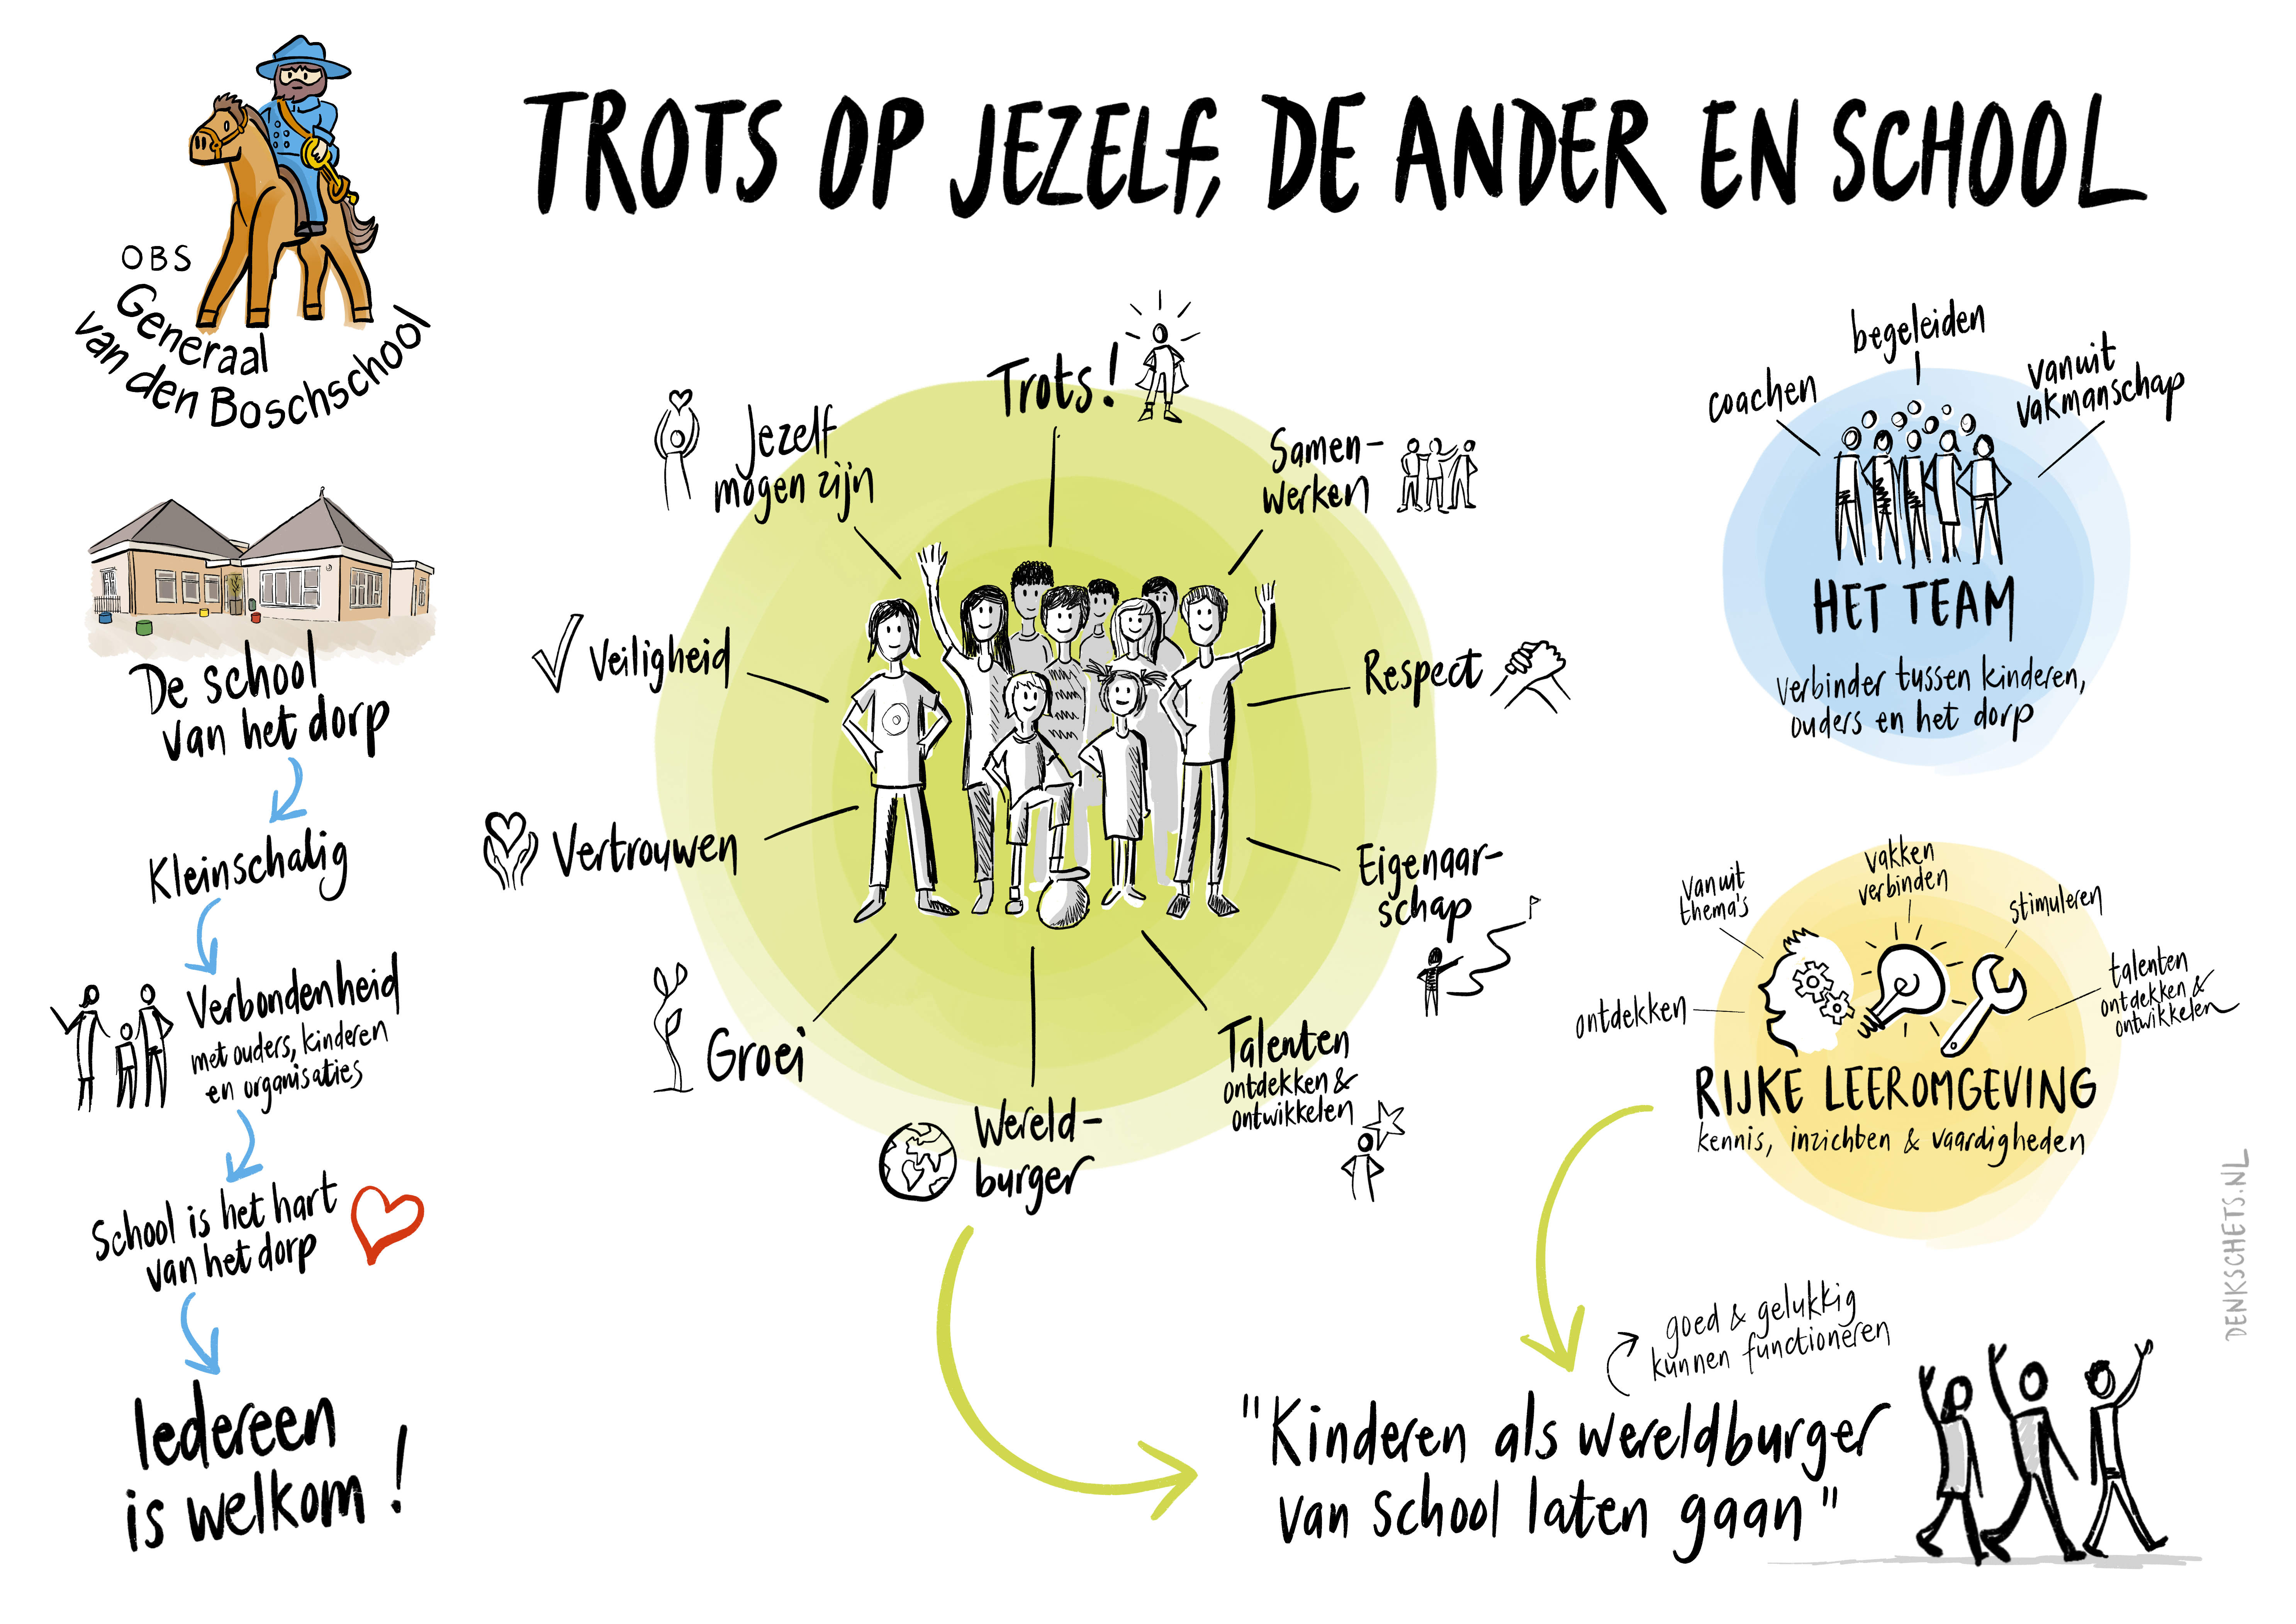 TROTS OP JEZELF, DE ANDER EN SCHOOL
OBS
Generaal
van den Boschschool
De school
van het dorp
Kleinschalig
Verbondenheid
met ouders, kinderen
en organisaties
School is het hart
van het dorp
Iedereen
is welkom!
Trots!
Jezelf
mogen zijn
Samen-
werken
Veiligheid
Respect
Vertrouwen
Eigenaar-
schap
Groei
Talenten
ontdekken &
ontwikkelen
Wereld-
burger
begeleiden
coachen
vanuit
vakmanschap
HET TEAM
verbinder tussen kinderen,
ouders en het dorp
vanuit
thema's
vakken
verbinden
stimuleren
ontdekken
talenten
ontdekken &
ontwikkelen
RIJKE LEEROMGEVING
kennis, inzichten & vaardigheden
goed & gelukkig
kunnen functioneren
"Kinderen als wereldburger
van school laten gaan"
DENKSCHETS.NL